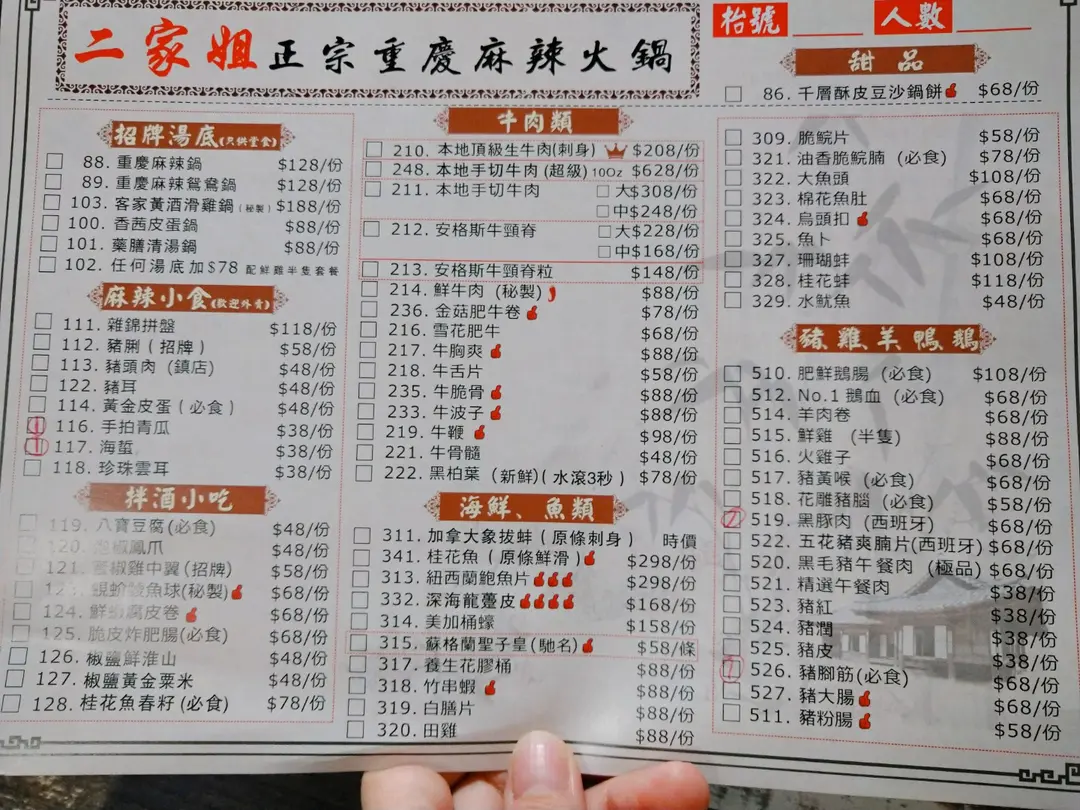 二家姐正宗重慶麻辣火鍋
枱號 人數
招牌湯底(只供堂食)
88. 重慶麻辣鍋 $128/份
89. 重慶麻辣鴛鴦鍋 $128/份
103. 客家黃酒滑雞鍋(秘製) $188/份
100. 香茜皮蛋鍋 $88/份
101. 藥膳清湯鍋 $88/份
102. 任何湯底加$78 配鮮雞半隻套餐
麻辣小食(歡迎外賣)
111. 雜錦拼盤 $118/份
112. 豬脷(招牌) $58/份
113. 豬頭肉(鎮店) $48/份
122. 豬耳 $48/份
114. 黃金皮蛋(必食) $48/份
116. 手拍青瓜 $38/份
117. 海蜇 $38/份
118. 珍珠雲耳 $38/份
拌酒小吃
119. 八寶豆腐(必食) $48/份
120. 椒鳳爪 $48/份
121. 椒雞中翼(招牌) $58/份
蜆蚧鯪魚球(秘製) $68/份
124. 鮮蝦腐皮卷 $68/份
125. 脆皮炸肥腸(必食) $68/份
126. 椒鹽鮮淮山 $48/份
127. 椒鹽黃金粟米 $48/份
128. 桂花魚春籽(必食) $78/份
牛肉類
210. 本地頂級生牛肉(刺身) $208/份
248. 本地手切牛肉(超級)10Oz $628/份
211. 本地手切牛肉 大$308/份
中$248/份
212. 安格斯牛頸脊 大$228/份
中$168/份
213. 安格斯牛頸脊粒 $148/份
214. 鮮牛肉(秘製) $88/份
236. 金菇肥牛卷 $78/份
216. 雪花肥牛 $68/份
217. 牛胸爽 $88/份
218. 牛舌片 $58/份
235. 牛脆骨 $88/份
233. 牛波子 $88/份
219. 牛鞭 $98/份
221. 牛骨髓 $48/份
222. 黑柏葉(新鮮)(水滾3秒) $78/份
海鮮、魚類
311. 加拿大象拔蚌(原條刺身) 時價
341. 桂花魚(原條鮮滑) $298/份
313. 紐西蘭鮑魚片 $298/份
332. 深海龍躉皮 $168/份
314. 美加桶蠔 $158/份
315. 蘇格蘭聖子皇(馳名) $58/條
317. 養生花膠桶 $88/份
318. 竹串蝦 $88/份
319. 白膳片 $88/份
320. 田雞 $88/份
甜品
86. 千層酥皮豆沙鍋餅 $68/份
309. 脆鯇片 $58/份
321. 油香脆鯇腩(必食) $78/份
322. 大魚頭 $108/份
323. 棉花魚肚 $68/份
324. 烏頭扣 $68/份
325. 魚卜 $68/份
327. 珊瑚蚌 $108/份
328. 桂花蚌 $118/份
329. 水魷魚 $48/份
豬、雞、羊、鴨、鵝
510. 肥鮮鵝腸(必食) $108/份
512. No.1鵝血(必食) $68/份
514. 羊肉卷 $68/份
515. 鮮雞(半隻) $88/份
516. 火雞子 $68/份
517. 豬黃喉(必食) $68/份
518. 花雕豬腦(必食) $58/份
519. 黑豚肉(西班牙) $68/份
522. 五花豬爽腩片(西班牙) $68/份
520. 黑毛豬午餐肉(極品) $68/份
521. 精選午餐肉 $38/份
523. 豬紅 $38/份
524. 豬潤 $38/份
525. 豬皮 $38/份
526. 豬腳筋(必食) $68/份
527. 豬大腸 $68/份
511. 豬粉腸 $58/份